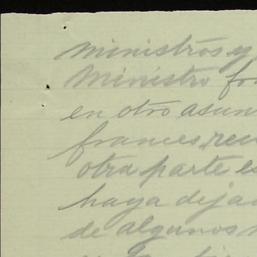 ministros y
Ministro
en otro asun
frances, rec
otra parte es
haya deja
de algunos